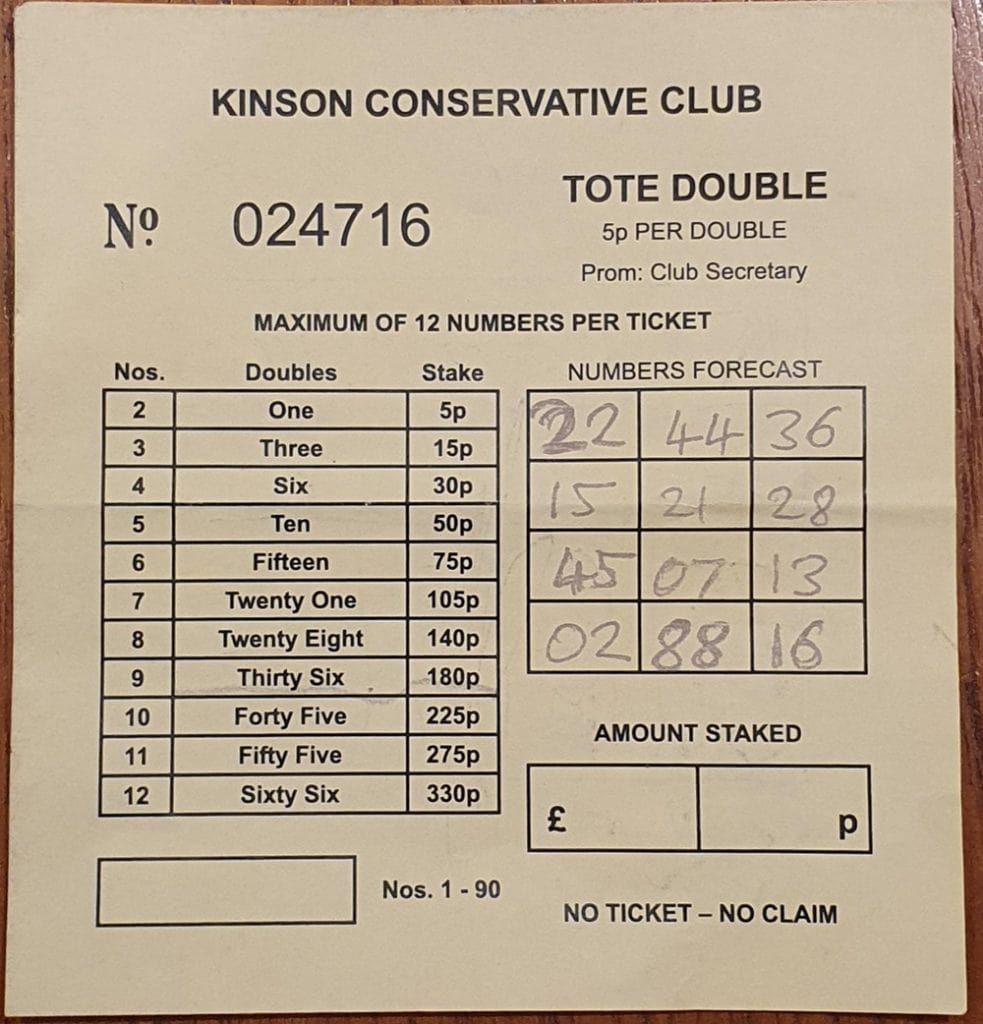 KINSON CONSERVATIVE CLUB
Nº 024716
TOTE DOUBLE
5p PER DOUBLE
Prom: Club Secretary
MAXIMUM OF 12 NUMBERS PER TICKET
Nos. Doubles Stake
2 One 5p
3 Three 15p
4 Six 30p
5 Ten 50p
6 Fifteen 75p
7 Twenty One 105p
8 Twenty Eight 140p
9 Thirty Six 180p
10 Forty Five 225p
11 Fifty Five 275p
12 Sixty Six 330p
NUMBERS FORECAST
22 44 36
15 21 28
45 07 13
02 88 16
AMOUNT STAKED
£ p
Nos. 1 - 90
NO TICKET – NO CLAIM